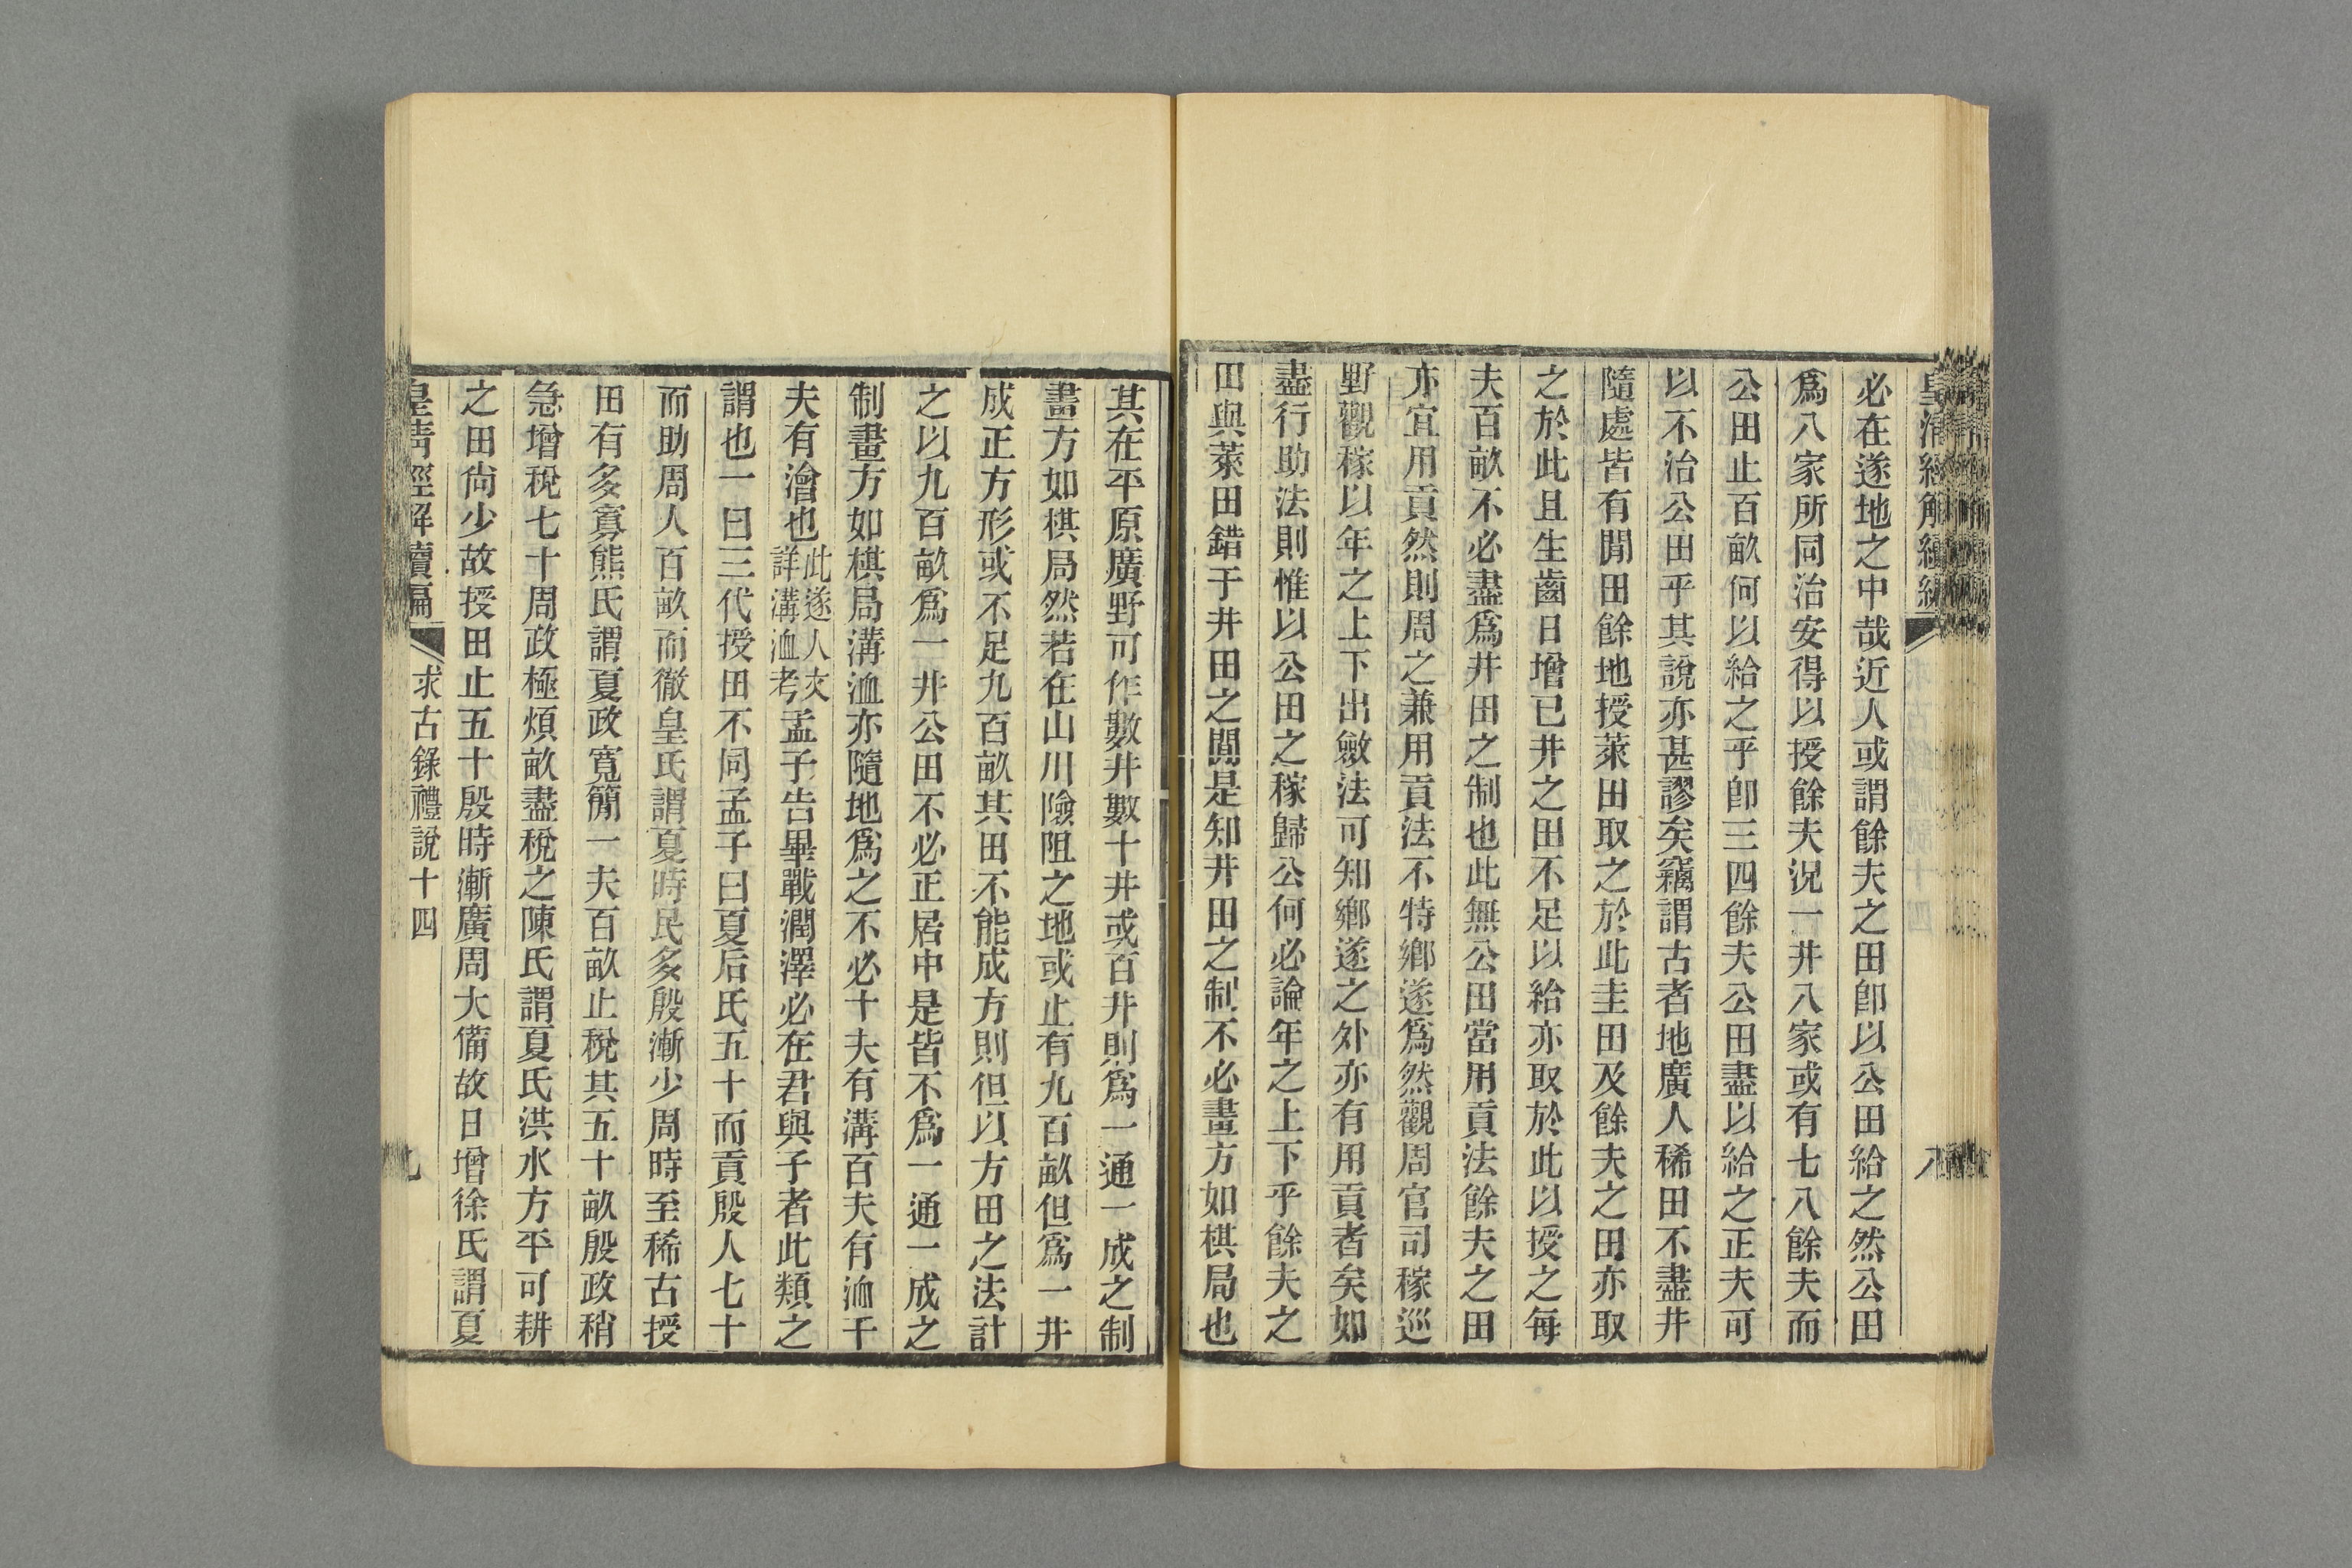 必在遂地之中哉近人或謂餘夫之田卽以公田給之然公田
爲八家所同治安得以授餘夫況一井八家或有七八餘夫而
公田止百畝何以給之乎卽三四餘夫公田盡以給之正夫可
以不治公田乎其說亦甚謬矣竊謂古者地廣人稀田不盡井
隨處皆有閒田餘地授萊田取之於此圭田及餘夫之田亦取
之於此且生齒日增已井之田不足以給亦取於此以授之每
夫百畝不必盡爲井田之制也此無公田當用貢法餘夫之田
亦宜用貢然則周之兼用貢法不特鄉遂爲然觀周官司稼巡
野觀稼以年之上下出斂法可知鄉遂之外亦有用貢者矣如
盡行助法則惟以公田之稼歸公何必論年之上下乎餘夫之
田與萊田錯于井田之閒是知井田之制不必畫方如棋局也
其在平原廣野可作數井數十井或百井則爲一通一成之制
畫方如棋局然若在山川險阻之地或止有九百畝但爲一井
成正方形或不足九百畝其田不能成方則但以方田之法計
之以九百畝爲一井公田不必正居中是皆不爲一通一成之
制畫方如棋局溝洫亦隨地爲之不必十夫有溝百夫有洫千
夫有澮也此遂人文詳溝洫考孟子告畢戰潤澤必在君與子者此類之
謂也一曰三代授田不同孟子曰夏后氏五十而貢殷人七十
而助周人百畝而徹皇氏謂夏時民多殷漸少周時至稀古授
田有多寡熊氏謂夏政寬簡一夫百畝止稅其五十畝殷政稍
急增稅七十周政極煩畝盡稅之陳氏謂夏氏洪水方平可耕
之田尙少故授田止五十殷時漸廣周大備故日增徐氏謂夏
皇淸經解續編 求古錄禮說十四 九